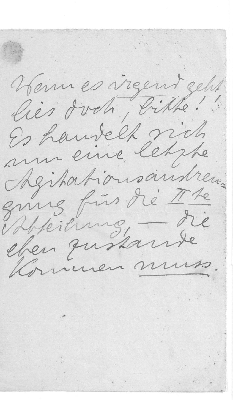 Wenn es irgend geht
lies doch, bitte!!
Es handelt sich
um eine letzte
Agitationsanstren=
gung für die IIte
Abteilung, — die
eben zustande
kommen muss.